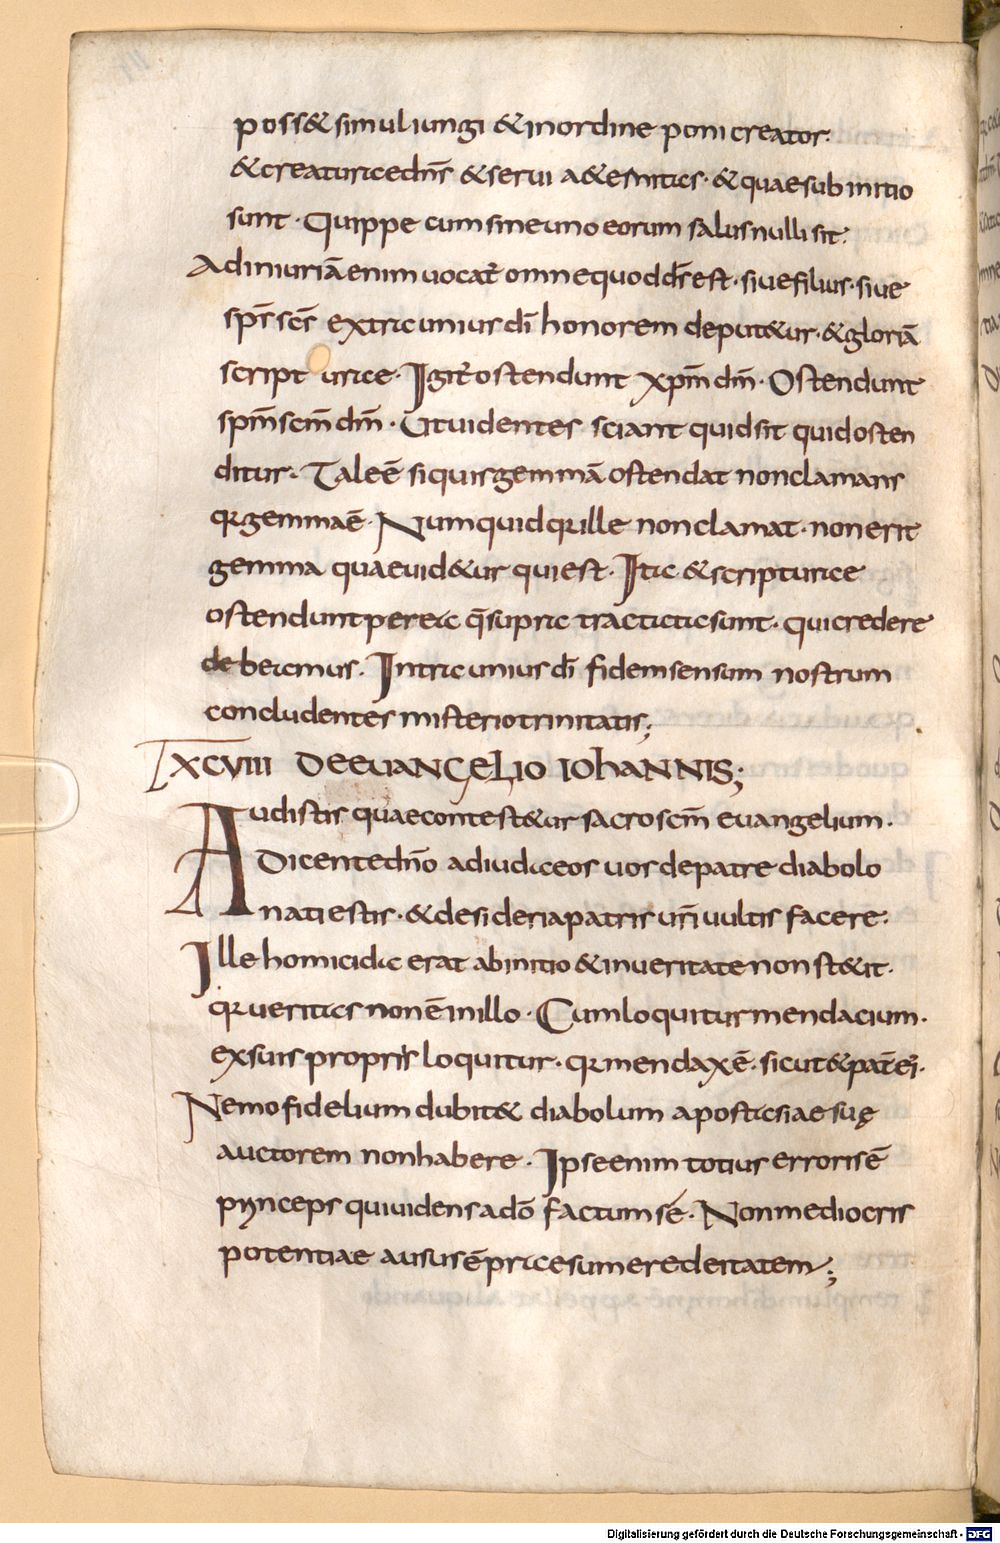 poss& simul iungi & in ordine poni creator·
& creatura & dn̄s & serui a&ernitas· & quae sub initio
sunt· Quippe cum sine uno eorum salus nulli sit·
Ad iniuriā enim uocat̄ omne quod d̄s est· siue filius· siue
sp̄s sc̄s extra unius dī honorem deput&ur· & gloriā
scripturae· Igit̄ ostendunt xp̄m dm̄· Ostendunt
sp̄m scm̄ dm̄· Ut uidentes sciant quid sit quid osten
ditur· Tale ē si quis gemmā ostendat non clamans
qr gemma ē· Numquid qr ille non clamat· non erit
gemma quae uid&ur qui est· Ita & scripturae
ostendunt per ea q̄ supra tractata sunt· qui credere
debeamus· Intra unius dī fidem sensum nostrum
concludentes misterio trinitatis;
XCVIII DE EUANGELIO IOHANNIS;
Audistis quae contest&ur sacroscm̄ euangelium·
Dicente dn̄o ad iudaeos uos de patre diabolo
nati estis· & desideria patris ur̄i uultis facere·
Ille homicida erat ab initio & in ueritate non st&it·
qr ueritas non ē in illo· Cum loquitur mendacium·
ex suis propriis loquitur· qr mendax ē· sicut & pat̄ ei·
Nemo fidelium dubit& diabolum apostasiae suę
auctorem non habere· Ipse enim totius erroris ē
princeps qui uidens a dō factum sē· Non mediocris
potentiae ausus ē praesumere deitatem;
Digitalisierung gefördert durch die Deutsche Forschungsgemeinschaft - DFG